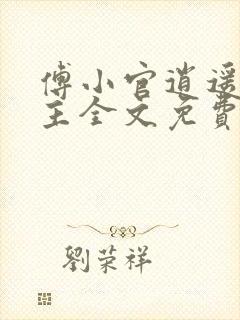 傅小官逍遥
王全文免費
劉荣祥